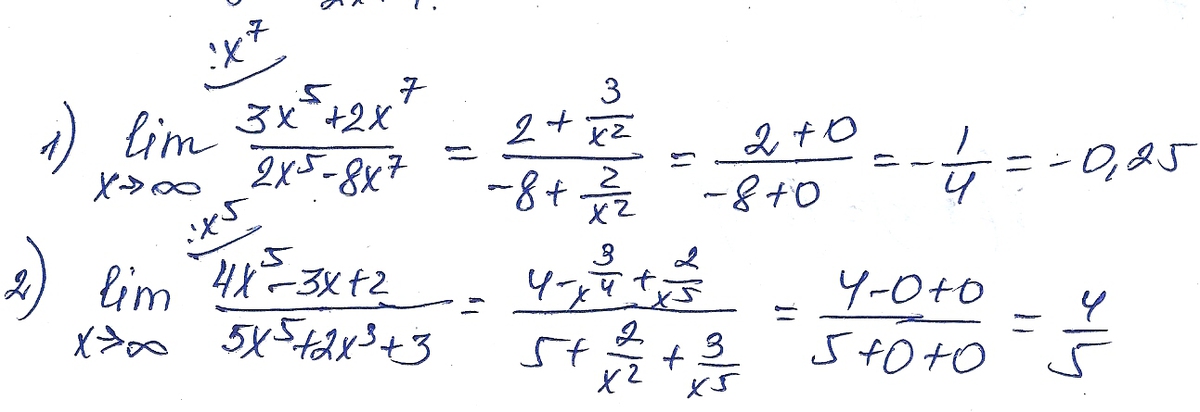 :x⁷
1) lim x→∞ (3x⁵+2x⁷)/(2x⁵-8x⁷) = (2+3/x²)/(-8+2/x²) = (2+0)/(-8+0) = -1/4 = -0,25
:x⁵
2) lim x→∞ (4x⁵-3x+2)/(5x⁵+2x³+3) = (4-3/x⁴+2/x⁵)/(5+2/x²+3/x⁵) = (4-0+0)/(5+0+0) = 4/5